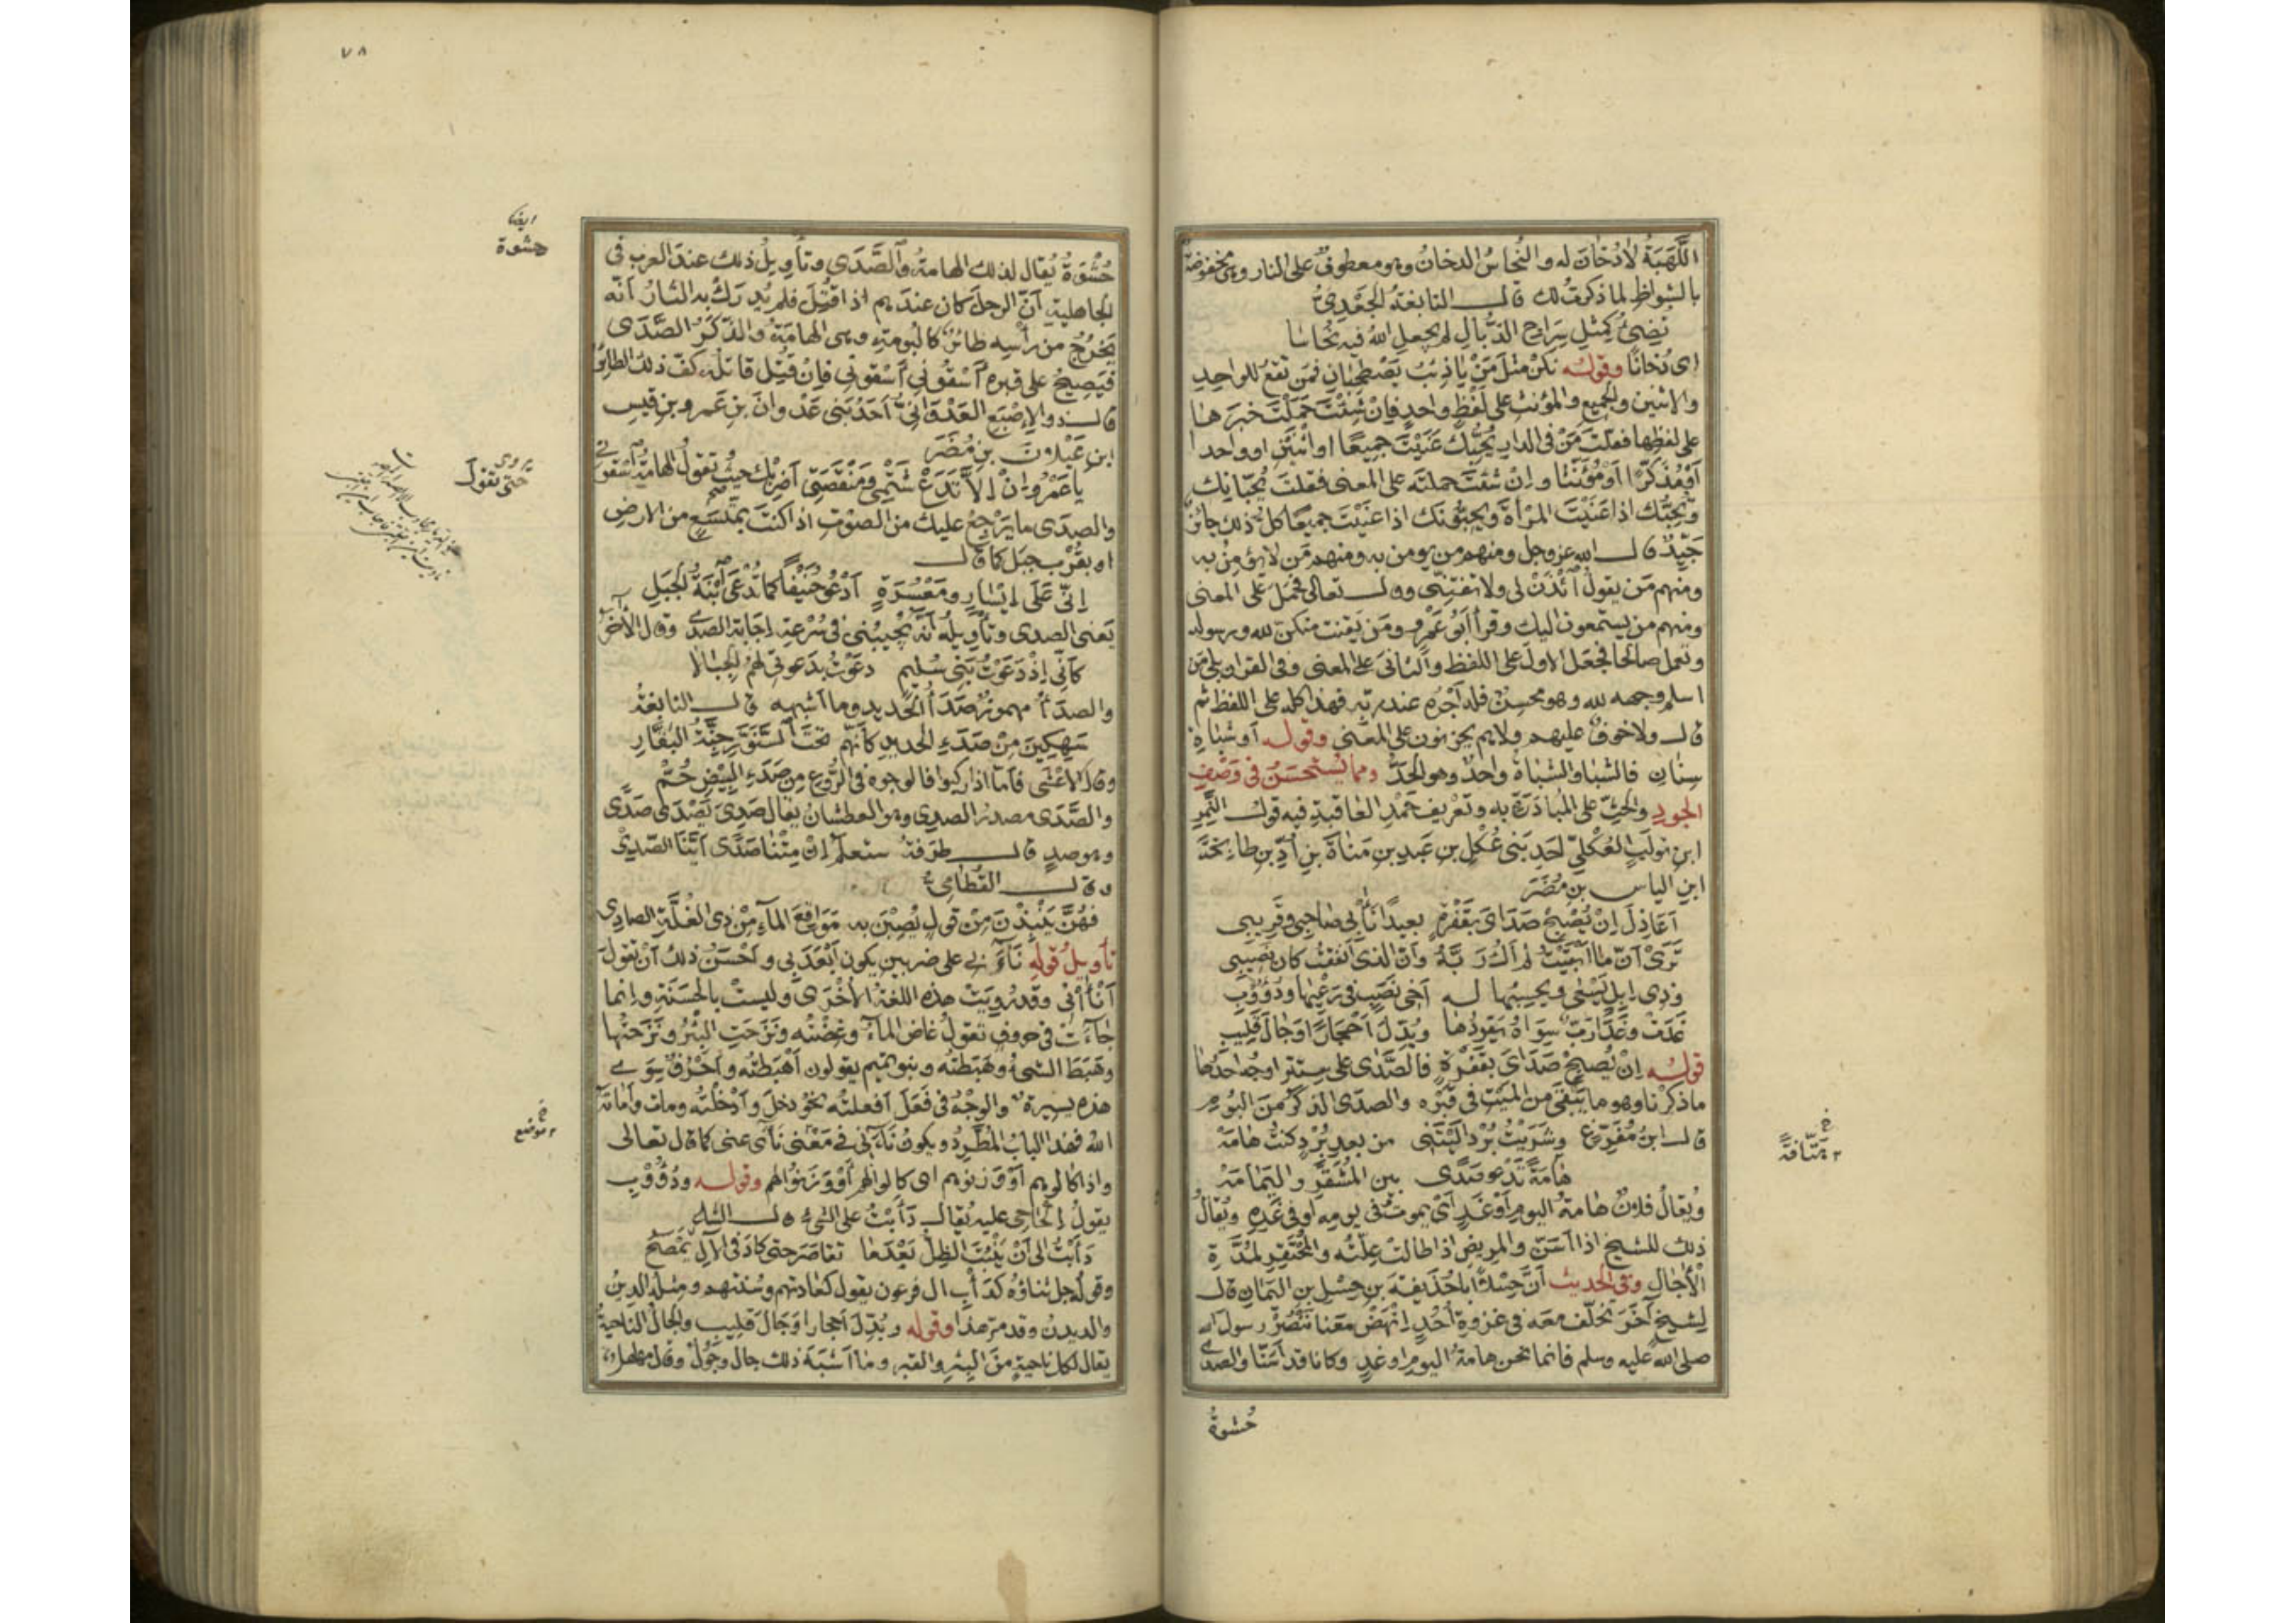 اللَّهَبَةُ لا دُخَانَ له والنُّحَاسُ الدخانُ وهو معطوفٌ على النار وهى مخفوضة
بالشواظِ لما ذكرتُ لك قال النابغةُ الجَعْدِىُّ
تُضِئُ كَمِثْلِ سِرَاجِ الذُّبَالِ لم يجعلِ اللهُ فيه نُحَاسَا
اى دُخانًا وقولُه نَكُنْ مثلَ مَنْ يا ذِئبُ يَصْطَحِبَانِ فمَنْ تقعُ للواحدِ
والاثنين والجميع والمؤنث على لفظٍ واحدٍ فإنْ شِئْتَ حَمَلْتَ خبرَها
على لفظِها فقلتَ مَنْ فى الدارِ يُحِبُّكَ عَنَيْتَ جميعًا او اثْنَيْنِ او واحدا
أوْ مُذَكَّرًا أوْ مُؤَنَّثا وإنْ شئتَ حملتَه على المعنى فقلتَ يُحِبَّانِك
وتُحِبُّك اذا عَنَيْتَ المرأةَ ويُحِبُّونَك اذا عَنَيْتَ جميعًا كلُّ ذلك جائزٌ
جَيِّدٌ قال الله عز وجل ومنهم من يؤمن به ومنهم مَن لا يؤمِنُ به
ومنهم مَن يقولُ ائْذَنْ لى ولا تفتِنّى وقال تعالى فحُمِلَ على المعنى
ومنهم من يستمعون اليك وقرأ أبُو عَمْرٍو ومَن يَقنت منكنّ لله ورسوله
وتعمل صالحًا فجَعَل الاولَ على اللفظ والثانىَ على المعنى وفى القرآن بلى مَن
اسلم وجهه لله وهو محسِنٌ فله أجْرُه عند ربّه فهذا كله على اللفظ ثم
قال ولا خوفٌ عليهم ولا هم يحزنون على المعنى وقوله أو شَبَاةِ
سِنَانِ فالشبا والشباةُ واحدٌ وهو الحَدُّ ومما يُستحسَنُ فى وَصْفِ
الجودِ والحَثِّ على المُبادَرَةِ به وتعريفِ حَمْدِ العاقبةِ فيه قولُ النَّمِرِ
ابنِ تولَبٍ العُكْلِىِّ احدِ بَنى عُكْلِ بنِ عَبدِ بنِ مَنَاةَ بنِ أُدِّ بنِ طابِخَةَ
ابنِ الياس بنِ مُضَرَ
أعَاذِلَ إنْ يُصْبِحْ صَدَاىَ بِقَفْرَةٍ بعيدًا نَآنِى صَاحِبى وقَرِيبى
تَرَىْ أنّ ما أبْقَيْتُ لم أكُ رَبَّهُ وأنّ الذى أنفقتُ كان نَصِيبى
وذِى إبِلٍ يَسْعَى ويحسِبُها له أخِى نَصَبٍ فى رَعْيِها ودُؤُوبِ
غَدَتْ وغَدَا رَبٌّ سِوَاهُ يَقُودُها وبُدِّلَ أحْجَارًا وجَالَ قَلِيبِ
قولُه إنْ يُصبِحْ صَدَاىَ بقَفْرَةٍ فالصَّدَى على ستة اوجُهٍ احَدُها
ما ذكرنا وهو ما يَبْقَى من الميّتِ فى قَبْرِه والصدَى الذكَرُ منَ البُومِ
قال ابنُ مُفَرِّغٍ وشَرَيْتُ بُرْدًا لَيْتَنى من بعدِ بُرْدٍ كنتُ هَامَهْ
هَامَةً تَدْعو صَدًى بين المُشَقَّرِ واليَمَامَهْ
ويُقالُ فلانٌ هامةُ اليومِ أوْ غَدٍ أىْ يموتُ فى يومِه أو فى غَدِه ويُقالُ
ذلك للشيخ اذا أسَنّ والمريضِ اذا طالت عِلّتُه والمُحْتَقِرِ لمُدَّةِ
الآجَالِ وفى الحديث أنَّ حِسْلًا أبا حُذَيفةَ بنِ حِسْلِ بنِ اليَمَانِ قال
لِشيخٍ آخَرَ تخلّف معَه فى غزوةِ أُحُدٍ انْهَضْ مَعَنا نَنْصُرْ رسولَ الله
صلى الله عليه وسلم فانما نحن هامةُ اليومِ او غدٍ وكانا قد أسَنّا والصدى
حُشْوَةُ
٧٨
ايضا
حشوة
حُشْوَةُ يُقال لذلك الهامةُ والصَّدَى وتأويلُ ذلك عندَ العربِ فى
الجاهليةِ أنّ الرجلَ كان عندَهم اذا قُتِلَ فلم يُدرَكْ به الثأرُ أنّه
يَخْرُجُ من رأسِه طائرٌ كالبُومَةِ وهى الهامَةُ والذَّكَرُ الصَّدَى
فيَصِيحُ على قبرِه أسْقُونى أسْقونى فإنْ قُتِلَ قاتلُه كَفّ ذلك الطائرُ
قال ذو الإصْبَعِ العَدْوَانِىُّ أحَدُ بَنى عَدْوانَ بنِ عَمرِو بنِ قيس
ابنِ عَيْلانَ بنِ مُضَرَ
يا عَمْرُو إنْ لا تَدَعْ شَتْمِى ومَنْقَصَتِى أضرِبْكَ حيثُ تقولُ الهامةُ اسْقونى
يروى
حتى تقول
والصدَى ما يَرْجِعُ عليك من الصوتِ اذا كنتَ بمُتَّسَعٍ من الارضِ
او بقُرْبِ جبَلٍ كما قال
إنّى عَلَى إيْسَارٍ ومَعْسُرَةٍ أدْعُو حُنَيْفًا كما تُدْعَى ابْنَةُ الجَبَلِ
يَعنى الصدى وتأويلُه أنّه يُجيبُنى فى سُرْعةِ اجابةِ الصدى وقال الآخرُ
كأنّى إذْ دَعَوْتُ بَنى سُلَيم دعَوْتُ بدَعوتى لهمُ الجِبَالا
والصدَأُ مهموزٌ صَدَأُ الحديدِ وما أشبهه قال النابغةُ
سَهِكِينَ مِنْ صَدَءِ الحديدِ كأنّهم تحتَ السَّنَوَّرِ جِنَّةُ البَقَّارِ
وقال الاعْشَى فأمّا اذا ركبوا فالوجوه فى الرَّوعِ مِن صَدَءِ البَيْضِ حُمّ
والصَّدَى مصدرُ الصدِى وهو العطشانُ يقال صَدِىَ يَصْدَى صَدًى
وهو صدٍ قال طرَفةُ ستعلمُ إنْ مِتْنا صَدًى أيُّنَا الصَّدِىْ
وقال القُطَامِىُّ
فهُنَّ يَنْبِذْنَ مِنْ قولٍ يُصِبْنَ به مَوَاقِعَ الماءِ مِنْ ذى الغُلَّةِ الصادِى
تأويلُ قوله نَآنِى على ضربين يكون أبْعَدَنى وأحْسَنُ ذلك أن تقولَ
أنْأانى وقد رُوِيَتْ هذه اللغةُ الأخْرَى وليستْ بالحَسَنةِ وانما
جاءَت فى حروفٍ تقولُ غاض الماءُ وغِضْتُه ونَزَحَتِ البِئْرُ ونَزَحْتُها
وهَبَطَ الشىءُ وهَبَطْتُه وبنو تميمٍ يقولون أهْبَطتُه وأحْرُفٌ سِوَى
هذه يسيرةٌ والوجْهُ فى فَعَلَ أفعلتُه نحوُ دخلَ وأدْخَلْتُه ومات وأماتَه
اللهُ فهذا البابُ المُطَّرِدُ ويكونُ نَآنِى فى مَعْنى نَآى عنى كما قال تعالى
خ
موضع
واذا كالوهم أوْ وَزنوهم اى كالوا لهم أوْ وَزَنُوا لهم وقوله ودُؤُوبِ
يقولُ إلحاحى عليه يُقال دَأبْتُ على الشىءِ قال الشاعر
دَأبْتُ الى أنْ يَنْبُتَ الظِلُّ بَعْدَما تقاصَرَ حتى كادَ فى الآلِ يَمْصَحُ
وقولُه جل ثناؤه كدَأْبِ ال فرعون يقول كعادتهم وسُنتهم ومثلُه الدينُ
والديدنُ وقد مرّ هذا وقوله وبُدِّلَ أحجارا وجَالَ قَلِيبِ والجالُ الناحيةُ
يقال لكل ناحيةٍ منَ البئرِ والقبرِ وما أشبَهَ ذلك جال وجُولٌ وقال مهلهل